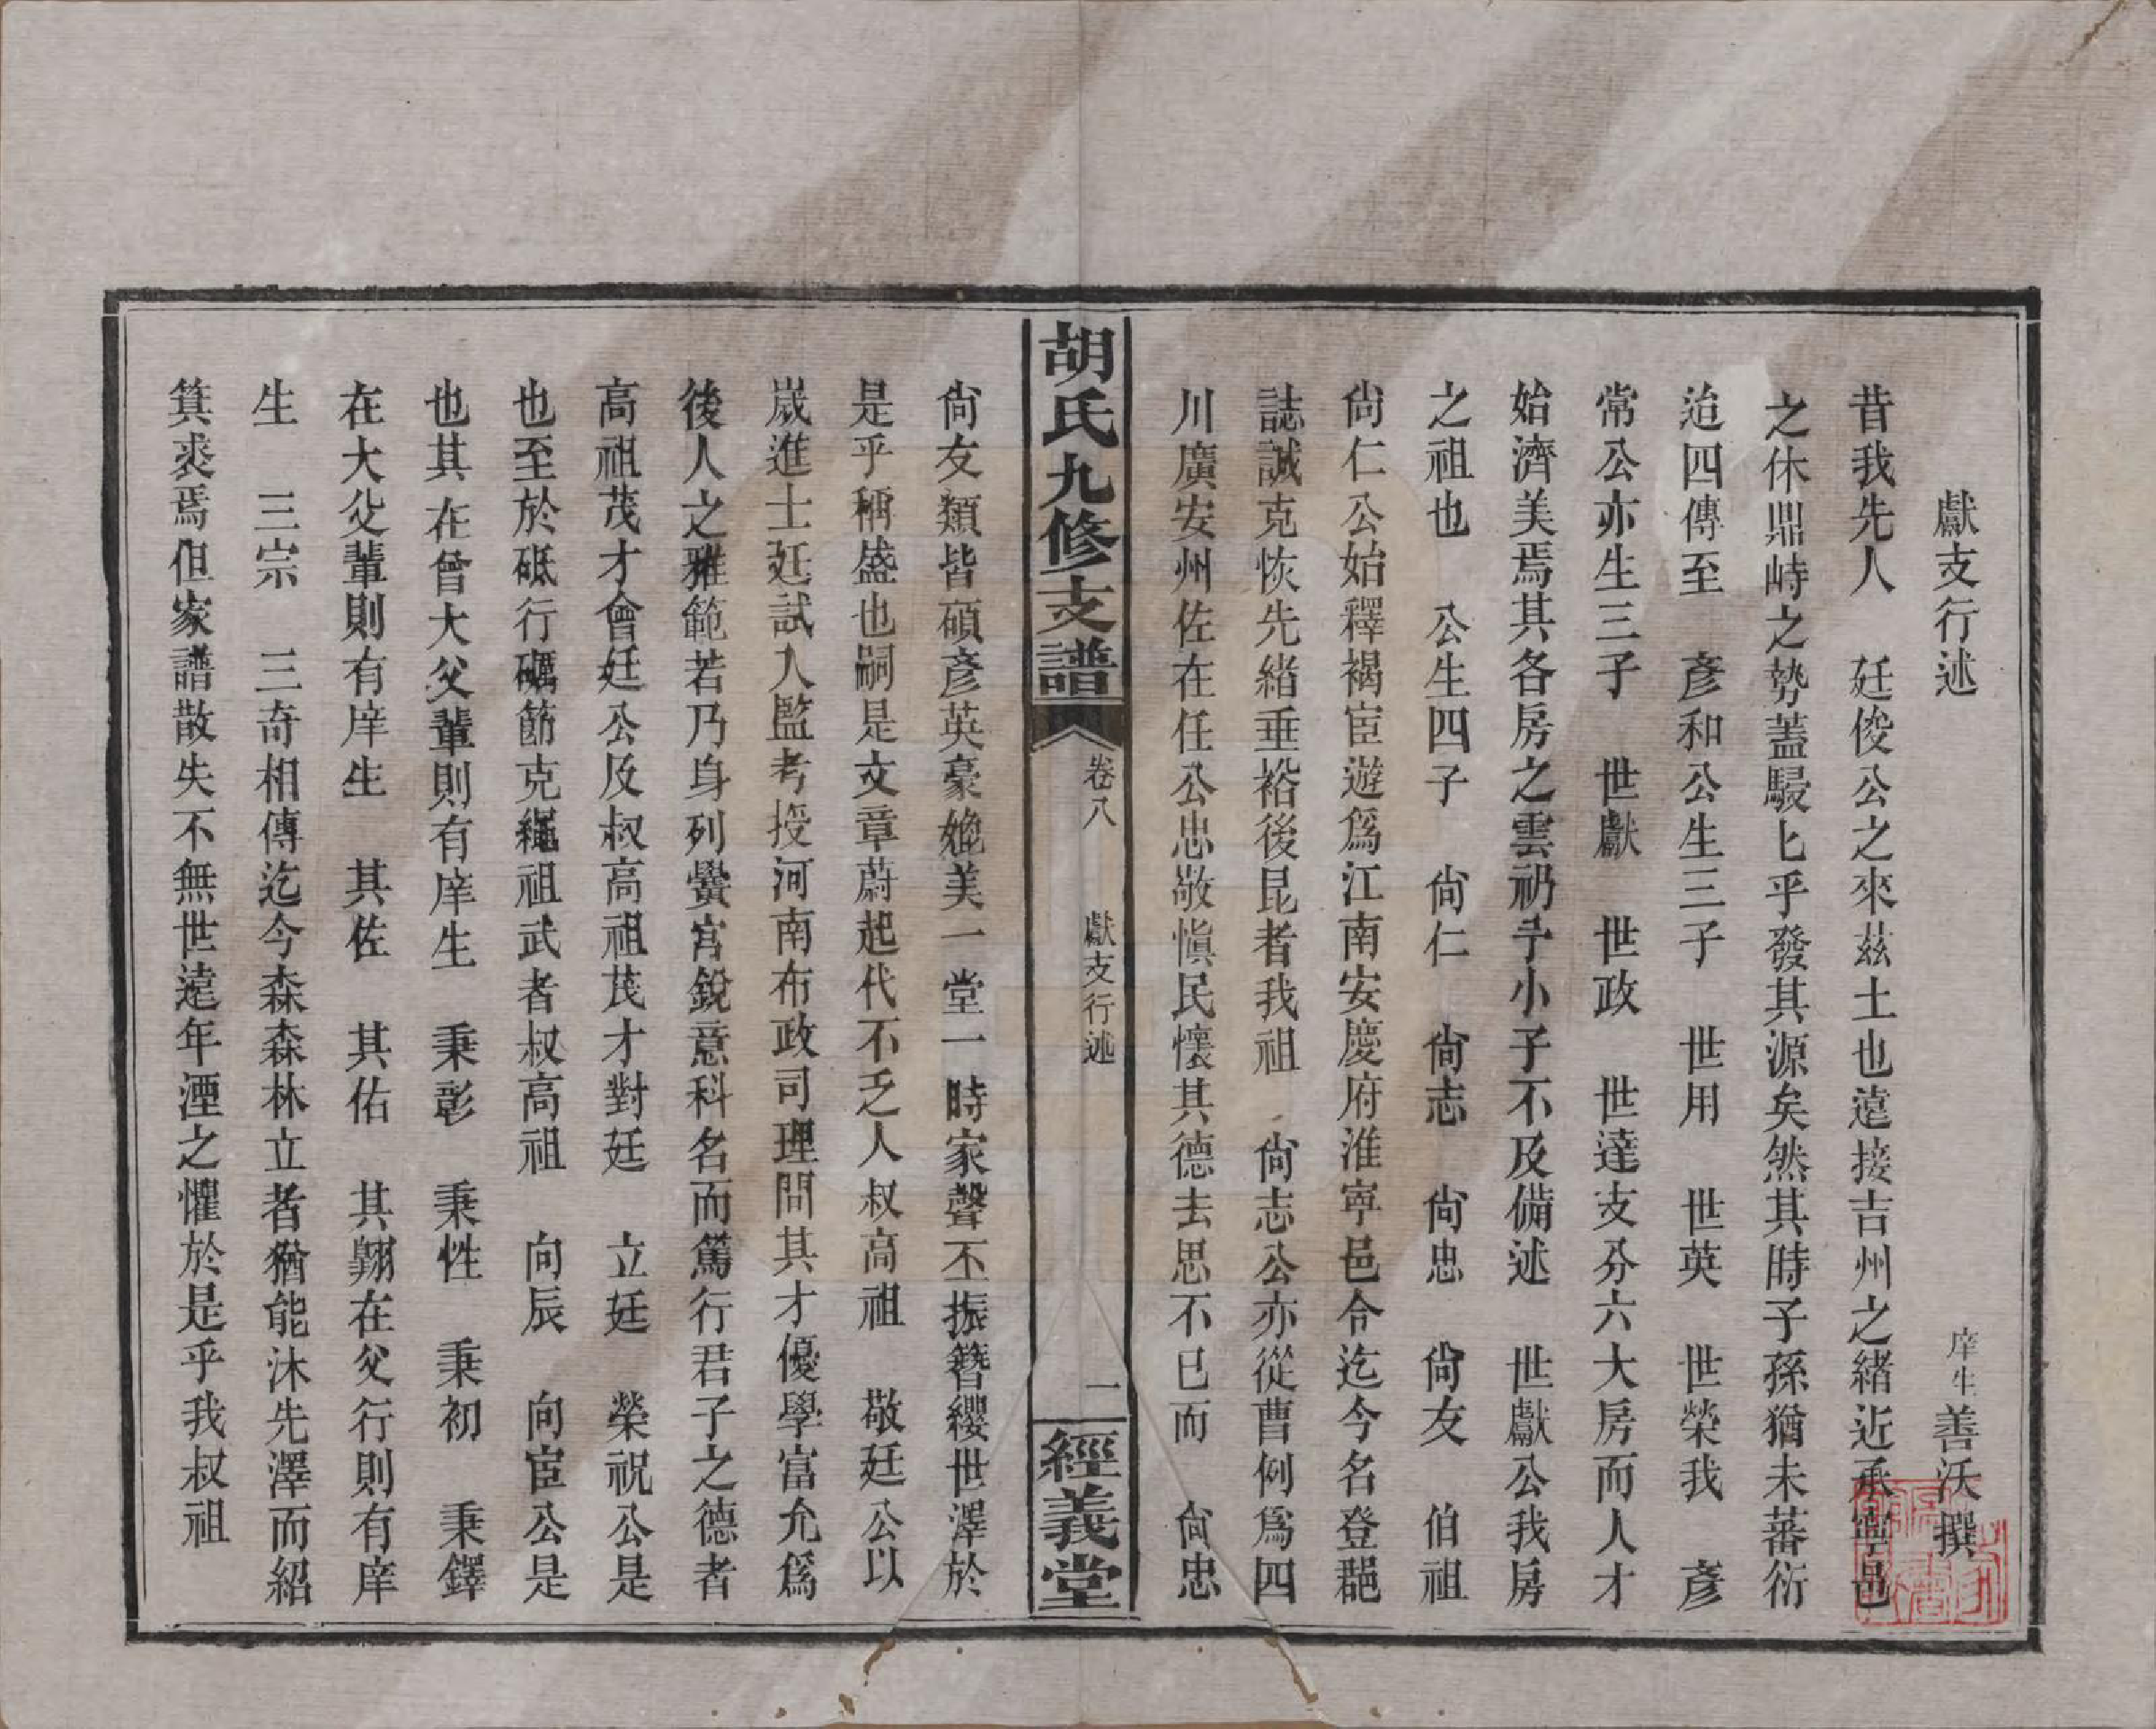 獻支行述
庠生善沃撰
昔我先人　廷俊公之來茲土也遠接吉州之緒近承寧邑
之休鼎峙之勢蓋駸匕乎發其源矣然其時子孫猶未蕃衍
迨四傳至　彥和公生三子　世用　世英　世榮我　彥
常公亦生三子　世獻　世政　世達支分六大房而人才
始濟美焉其各房之雲礽予小子不及備述　世獻公我房
之祖也　公生四子　尙仁　尙志　尙忠　尙友　伯祖
尙仁公始釋褐宦遊爲江南安慶府淮寧邑令迄今名登郡
誌誠克恢先緒垂裕後昆者我祖　尙志公亦從曹例爲四
川廣安州佐在任公忠敬愼民懷其德去思不已而　尙忠
胡氏九修支譜
卷八
獻支行述
二
經義堂
尙友類皆碩彥英豪媲美一堂一時家聲丕振簪纓世澤於
是乎稱盛也嗣是文章蔚起代不乏人叔高祖　敬廷公以
嵗進士廷試入監考授河南布政司理問其才優學富允爲
後人之雅範若乃身列黌宮銳意科名而篤行君子之德者
高祖茂才會廷公及叔高祖茂才對廷　立廷　榮祝公是
也至於砥行礪節克繩祖武者叔高祖　向辰　向宦公是
也其在曾大父輩則有庠生　秉彰　秉性　秉初　秉鐸
在大父輩則有庠生　其佐　其佑　其翺在父行則有庠
生　三宗　三奇相傳迄今森森林立者猶能沐先澤而紹
箕裘焉但家譜散失不無世遠年湮之懼於是乎我叔祖